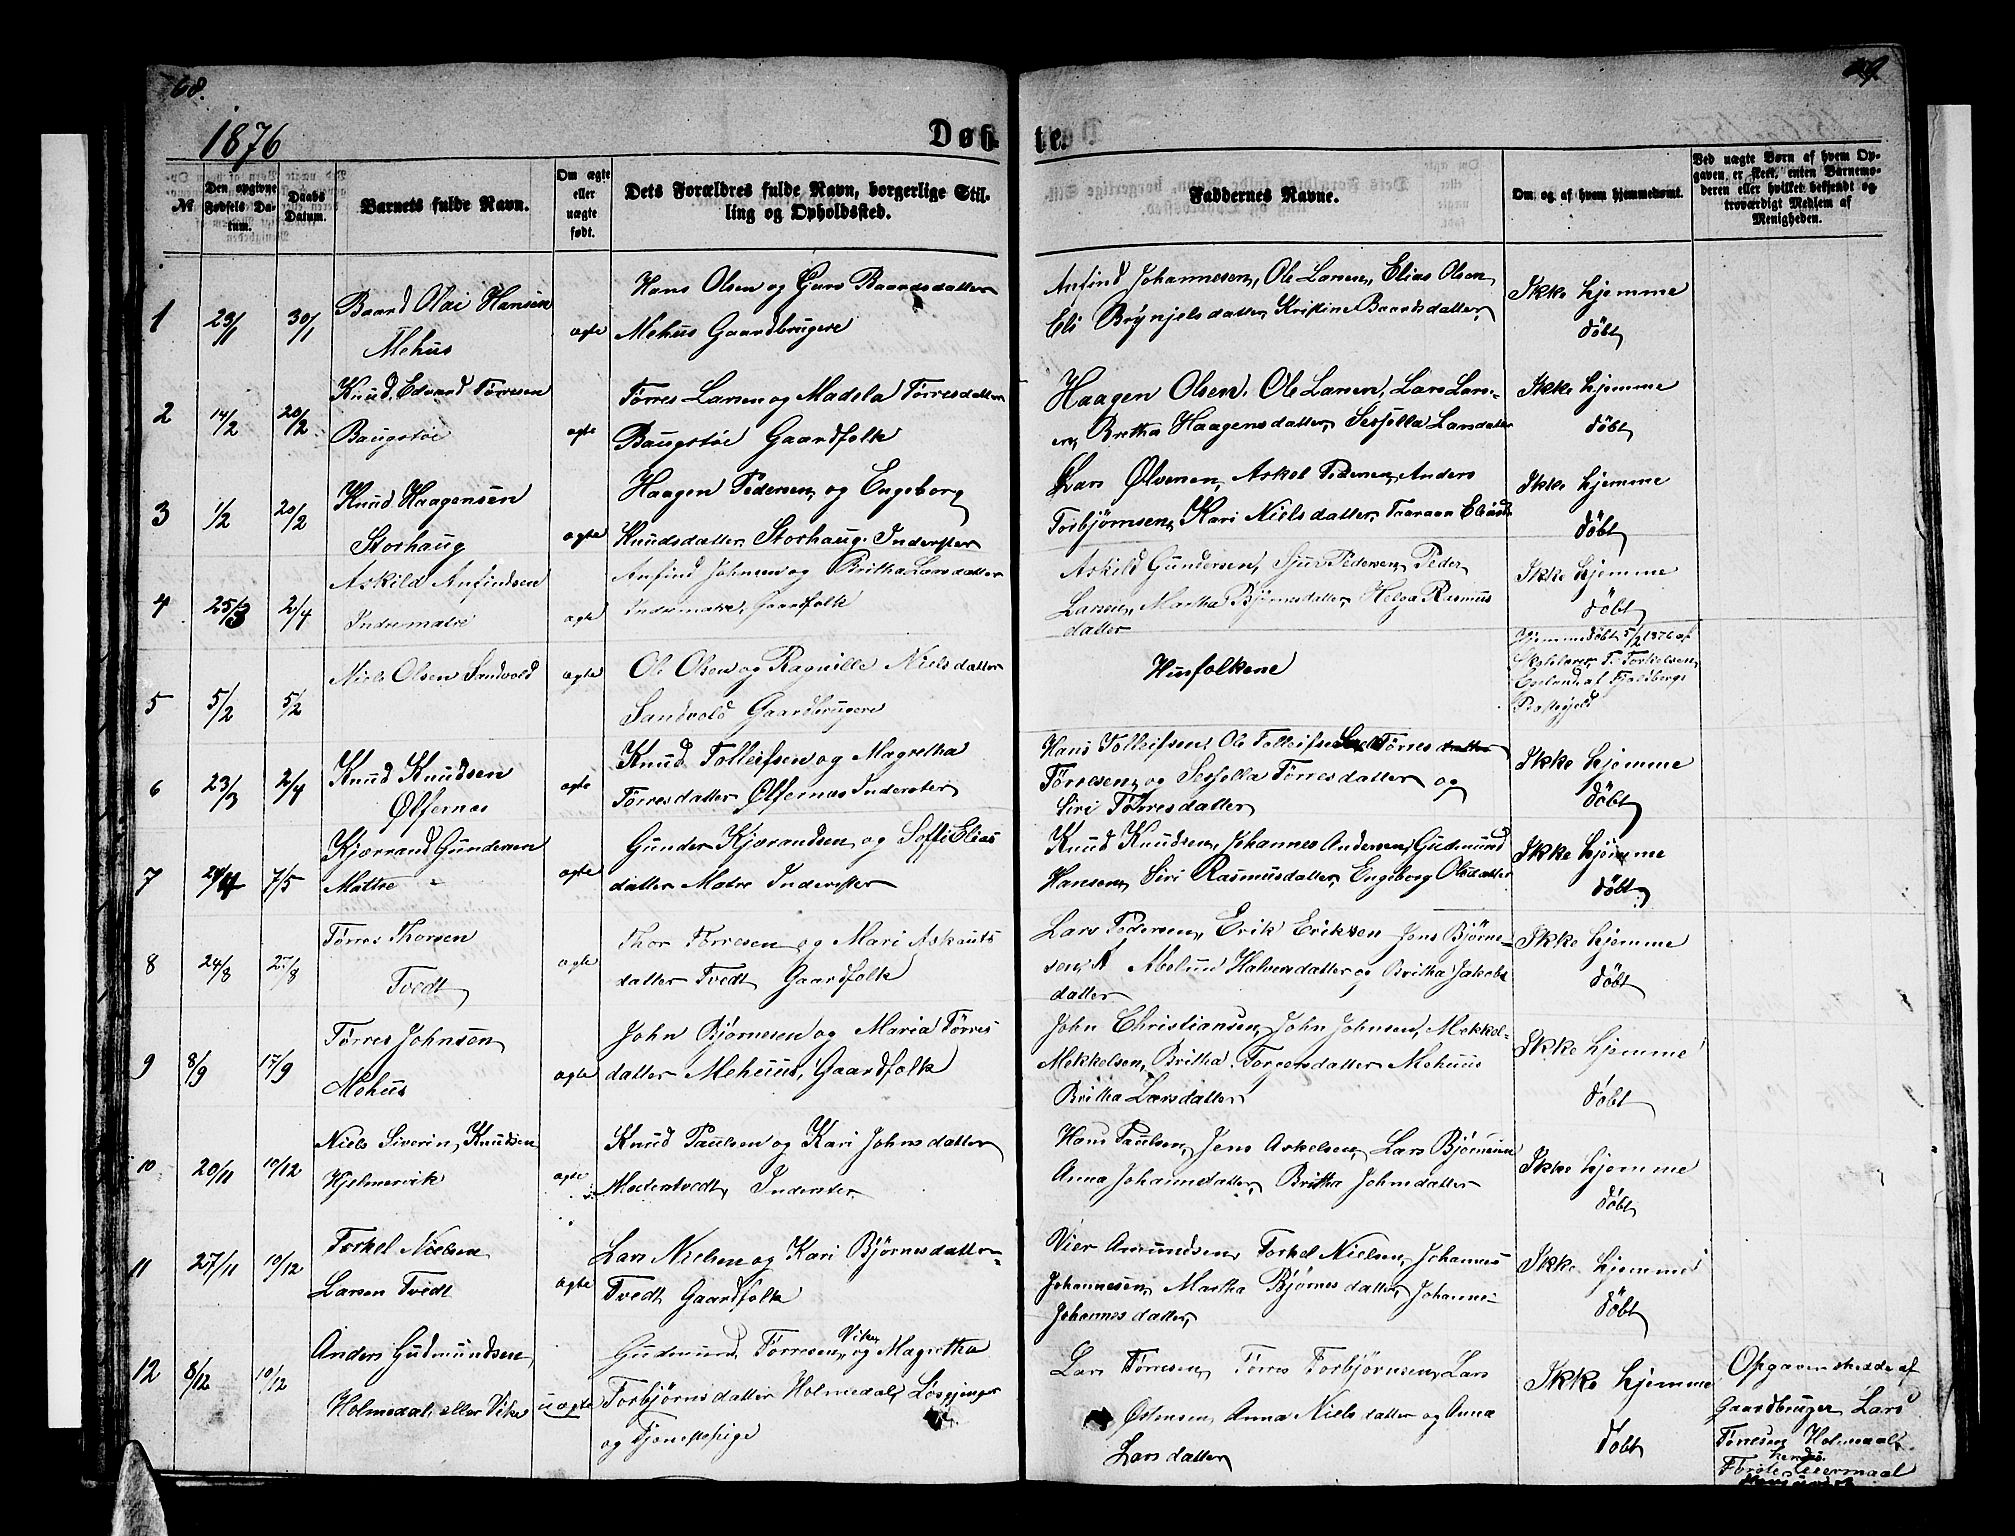 68.
1876
Døbte.
№
Den opgivne Fødsels Datum.
Daabs Datum.
Barnets fulde Navn.
Om ægte eller uægte født.
Dets Forældres fulde Navn, borgerlige Stilling og Opholdssted.
Faddernes Navne.
Om og af hvem hjemmedøbt.
Ved uægte Børn af hvem Opgaven er skeet, enten Barnemoderen eller hvilket bekjendt og troværdigt Medlem af Menigheden.
1 23/1 30/1
Baard Olai Hansen
Mehus
ægte
Hans Olsen og Guro Baardsdatter
Mehus Gaardbrugere
Anfind Johannesen, Ole Larsen, Elias Olsen
Eli Brynjelsdatter, Kristine Baardsdatter
Ikke hjemme
døbt
2 14/2 20/2
Knud Edvard Tørresen
Baugstøe
ægte
Tørres Larsen og Madela Tørresdatter
Baugstøe Gaardfolk
Haagen Olsen, Ole Larsen, Lars Lars-
en, Britha Haagensdatter, Sesjella Larsdatter
Ikke hjemme
døbt
3 1/2 20/2
Knud Haagensen
Storhaug
ægte
Haagen Pedersen og Engeborg
Knudsdatter Storhaug, Inderster
Lars Ølversen, Askel Pedersen, Anders
Torbjørnsen, Kari Nielsdatter,
Ikke hjemme
døbt
4 25/3 2/4
Askild Anfindsen
Indrematre
ægte
Anfind Johnsen og Britha Larsdatter
Indrematre, Gaardfolk
Askild Gundersen, Sjur Pedersen, Peder
Larsen, Martha Bjørnsdatter, Helga Rasmus
datter
Ikke hjemme
døbt
5 5/2 5/2
Niels Olsen Sandvold
ægte
Ole Olsen og Ragnille Nielsdatter
Sandvold Gaardbrugere
Husfolkene
Hjemmedøbt 5/2 1876 af
Skolelærer T. Torkelsen
Eseland af Fjeldbergs
Præstegjeld
6 23/3 2/4
Knud Knudsen
Ølfernes
ægte
Knud Tolleifsen og Magretha
Tørresdatter Ølfernes Inderster
Hans Tolleifsen, Ole Tolleifsen
Tørresen, og Sesjella Tørresdatter og
Siri Tørresdatter
Ikke hjemme
døbt
7 24/4 7/5
Kjærrand Gundersen
Mattre
ægte
Gunder Kjærandsen og Soffi Elias
datter Matre Inderster
Knud Knudsen, Johannes Andersen, Gudmund
Hansen, Siri Rasmusdatter, Engeborg Olsdatter
Ikke hjemme
døbt
8 24/8 27/8
Tørres Thorsen
Tvedt
ægte
Thor Tørresen og Mari Askauts
datter Tvedt Gaardfolk
Lars Pedersen, Erik Eriksen Jens Bjørne-
sen, Abelun Halversdatter og Britha Jakobs
datter
Ikke hjemme
døbt
9 8/9 17/9
Tørres Johnsen
Mehus
ægte
John Bjørnesen og Maria Tørres
datter Mehuus, Gaardfolk
John Christiansen, John Johnsen, Mekkel-
Mekkelsen, Britha Torgersdatter Mehuus
Britha Larsdatter
Ikke hjemme
døbt
10 20/11 10/12
Niels Siverin Knudsen
Hjelmervik
ægte
Knud Paulsen og Kari Johnsdatter
Inderster
Hans Paulsen, Jens Askelsen, Lars Bjørnesen
Anna Johannsdatter, Britha Johnsdatter
Ikke hjemme
døbt
11 27/11 10/12
Torkel Nielsen
Larsen Tvedt
ægte
Lars Nielsen og Kari Bjørnesdatter
Tvedt Gaardfolk
Vier Amundsen, Torkel Nielsen, Johannes
Johannesen, Martha Bjørnesdatter, Johanne-
Johannesdatter
Ikke hjemme
døbt
12 8/12 10/12
Anders Gudmundsen
Holmedal eller Vike
uægte
Gudmund Tørresen Vike, og Magretha
Torbjørnsdatter Holmedal, Løsgjenger
og Tjenestepige
Lars Tørresen, Tørres Torbjørnsen, Lars
Østensen, Anna Nielsdatter og Anna
Larsdatter
Ikke hjemme
døbt
Opgaven skedde af
Gaardbruger Lars
Tørresen Holmedal.
Første Leiermaal